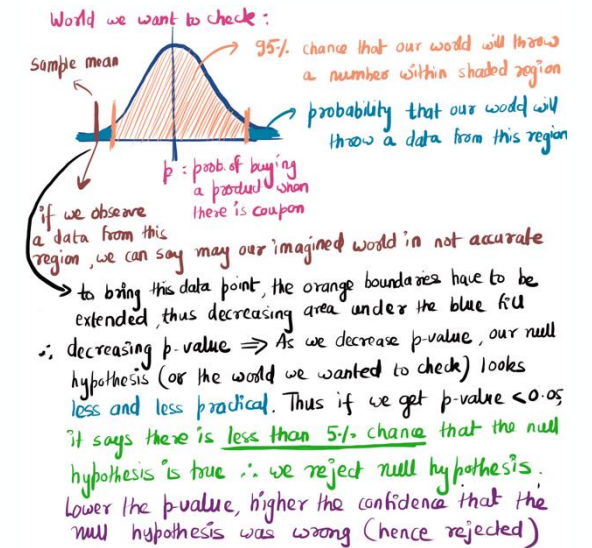 World we want to check:
95% chance that our world will throw
a number within shaded region
Sample mean
probability that our world will
throw a data from this region
p : prob. of buying
a product when
there is coupon
if we observe
a data from this
region, we can say may our imagined world in not accurate
to bring this data point, the orange boundaries have to be
extended, thus decreasing area under the blue fill
∴ decreasing p-value ⇒ As we decrease p-value, our null
hypothesis (or the world we wanted to check) looks
less and less practical. Thus if we get p-value <0.05,
it says there is less than 5% chance that the null
hypothesis is true ∴ we reject null hypothesis.
Lower the p-value, higher the confidence that the
null hypothesis was wrong (hence rejected)